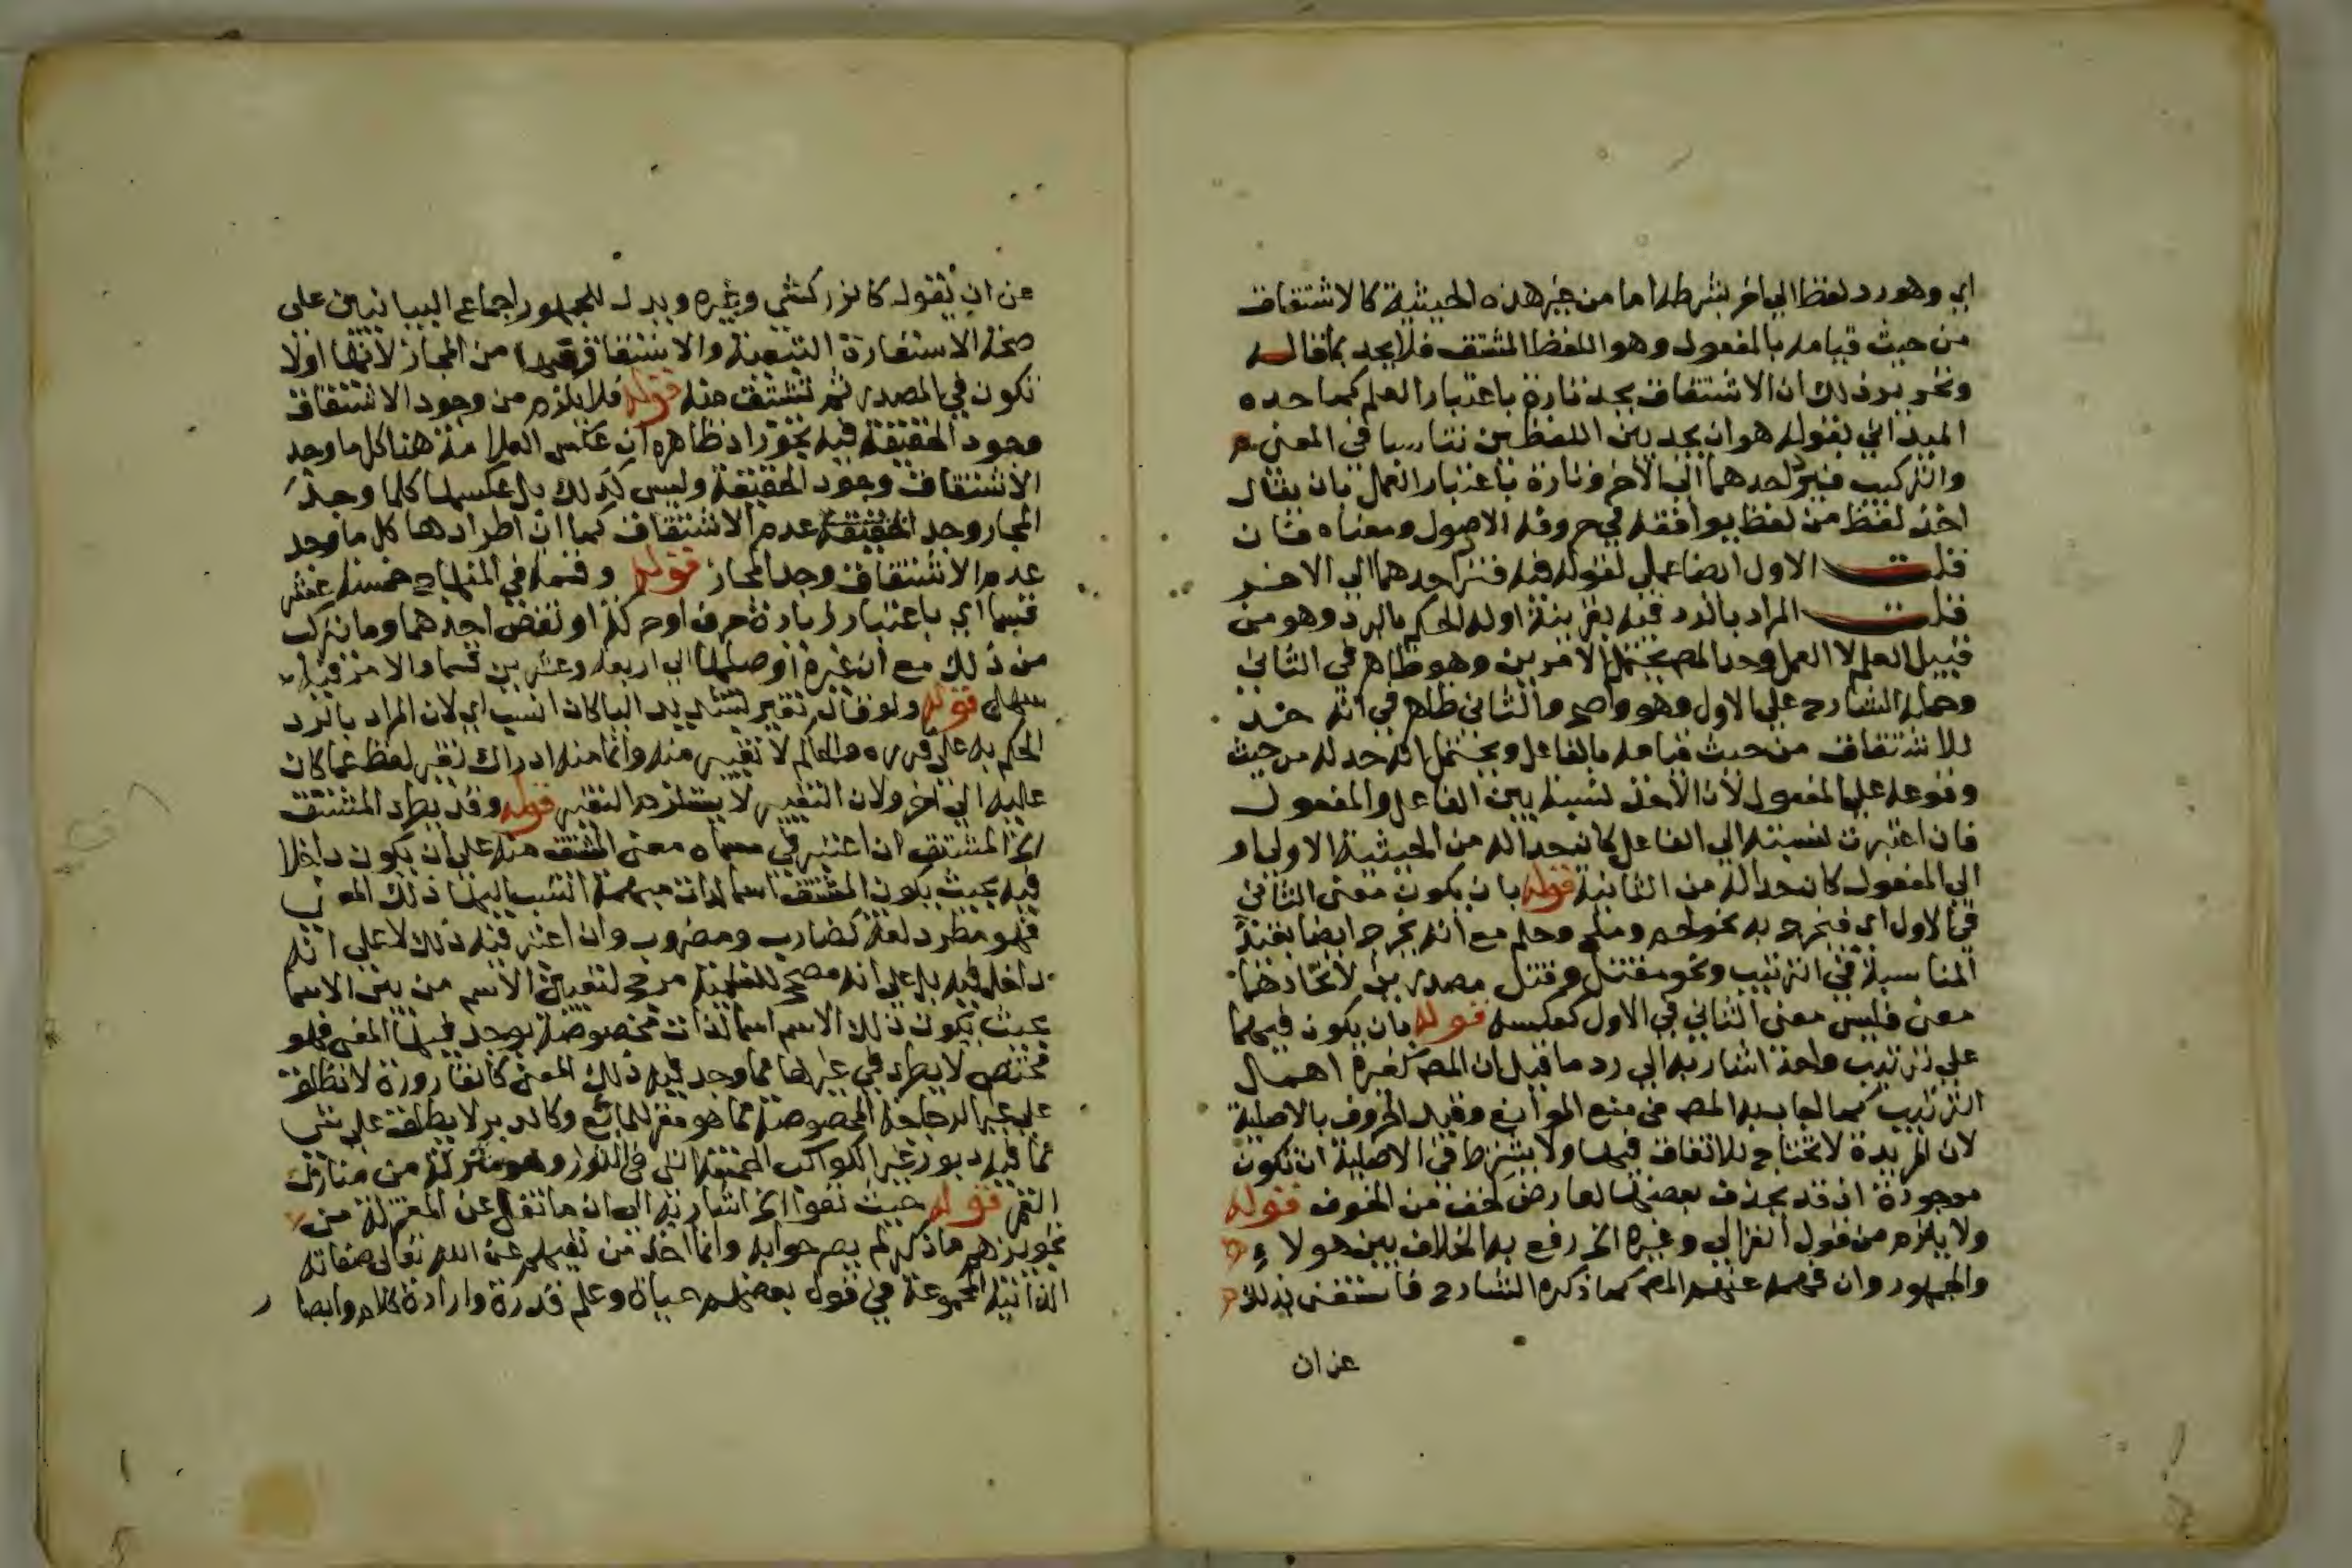 اي وهو رد لفظ الي اخر بشرطه اما من غير هذه الحيثية كالاشتقاق
من حيث قيامه بالمفعول وهو اللفظ المشتق فلا يحد بما قاله
وتحرير ذلك ان الاشتقاق يحد تارة باعتبار العلم كما حده
الميداني بقوله هو ان يجد بين اللفظين تناسبا في المعني
والتركيب فيرد احدهما الي الآخر وتارة باعتبار العمل بان يقال
اخذ لفظ من لفظ يوافقه في حروفه الاصول ومعناه فان
قلت الاول ايضا عملي لقوله فيه فترد احدهما الي الاخر
قلت المراد بالرد فيه بقرينة اوله الحكم بالرد وهو من
قبيل العلم لا العمل وحد المص يحتمل الامرين وهو ظاهر في الثاني
وحمله الشارح علي الاول وهو واضح والثاني ظاهر في انه حد
للاشتقاق من حيث قيامه بالفاعل ويحتمل انه حد له من حيث
وقوعه علي المفعول لأن الأخذ نسبة بين الفاعل والمفعول
فان اعتبرت نسبته الي الفاعل كان حدا له من الحيثية الاولي او
الي المفعول كان حدا له من الثانية قوله بان يكون معني الثاني
في الاول اي فيخرج به نحو لحم وملح وحلم مع انه يخرج ايضا بقيد
المناسبة في الترتيب ونحو مقتل وقتل مصدرين لاتحادهما
معني فليس معني الثاني في الاول كعكسه قوله بان يكون فيهما
علي ترتيب واحد اشار به الي رد ما قيل ان المص كغيره اهمال
الترتيب كما اجاب به المص في منع الموانع وقيد الحروف بالاصلية
لان المزيدة لا تحتاج للاتفاق فيها ولا يشترط في الاصلية ان تكون
موجودة اذ قد يحذف بعضها لعارض كخف من الخوف قوله
ولا يلزم من قول الغزالي وغيره الخ رفع به الخلاف بين هولاء
والجمهور وان فهمه عنهم المص كما ذكره الشارح فاستغنى بذلك
عن ان
عن ان يقوله كالزركشي وغيره ويدل للجمهور اجماع البيانيين على
صحة الاستعارة التبعية والاشتقاق فيها من المجاز لأنها اولا
تكون في المصدر ثم تشتق منه قوله فلا يلزم من وجود الاشتقاق
وجود الحقيقة فيه تجوز اذ ظاهره ان عكس العلامة هنا كل ما وجد
الاشتقاق وجود الحقيقة وليس كذلك بل عكسها كلما وجد
المجاز وجد عدم الاشتقاق كما ان اطرادها كل ما وجد
عدم الاشتقاق وجد المجاز قوله وقسمه في المنهاج خمسة عشر
قسما اي باعتبار زيادة حرف او حركة او نقص احدهما وما يتركب
من ذلك مع ان غيره اوصلها الي اربعة وعشرين قسما والامر فيه
سهل قوله ولو قال تغيير بتشديد اليا كان انسب اي لان المراد بالرد
الحكم به علي ما والعالم لا تغيير منه وانما منه ادراك تغير لفظ عما كان
عليه الي اخر ولان التغيير لا يستلزم التغير قوله وقد يطرد المشتق
الخ المشتق ان اعتبر في مسماه معني المشتق منه علي ان يكون داخلا
فيه بحيث يكون المشتق اسما لذات مبهمة انتسب اليها ذلك المعني
فهو مطرد لغة كضارب ومضروب وان اعتبر فيه ذلك لا علي انه
داخل فيه بل علي انه مصحح للتسمية مرجح لتعيين الاسم من بين الاسما
بحيث يكون ذلك الاسم اسما لذات مخصوصة يوجد فيها المعني فهو
مختص لا يطرد في غيرها مما وجد فيه ذلك المعني كالقارورة لا تطلق
علي غير الزجاجة المخصوصة مما هو مقر للمائع وكالدبران لا يطلق علي شي
مما فيه دبور غير الكواكب الخمسة التي في الثور وهو منزلة من منازل
القمر قوله حيث نفوا الخ اشار به الي ان ما نقل عن المعتزلة من
تجويزهم ما ذكر لم يصرحوا به وانما اخذ من نفيهم عن الله تعالي صفاته
الذاتية المجموعة في قول بعضهم حياة وعلم قدرة وارادة كلام وابصار